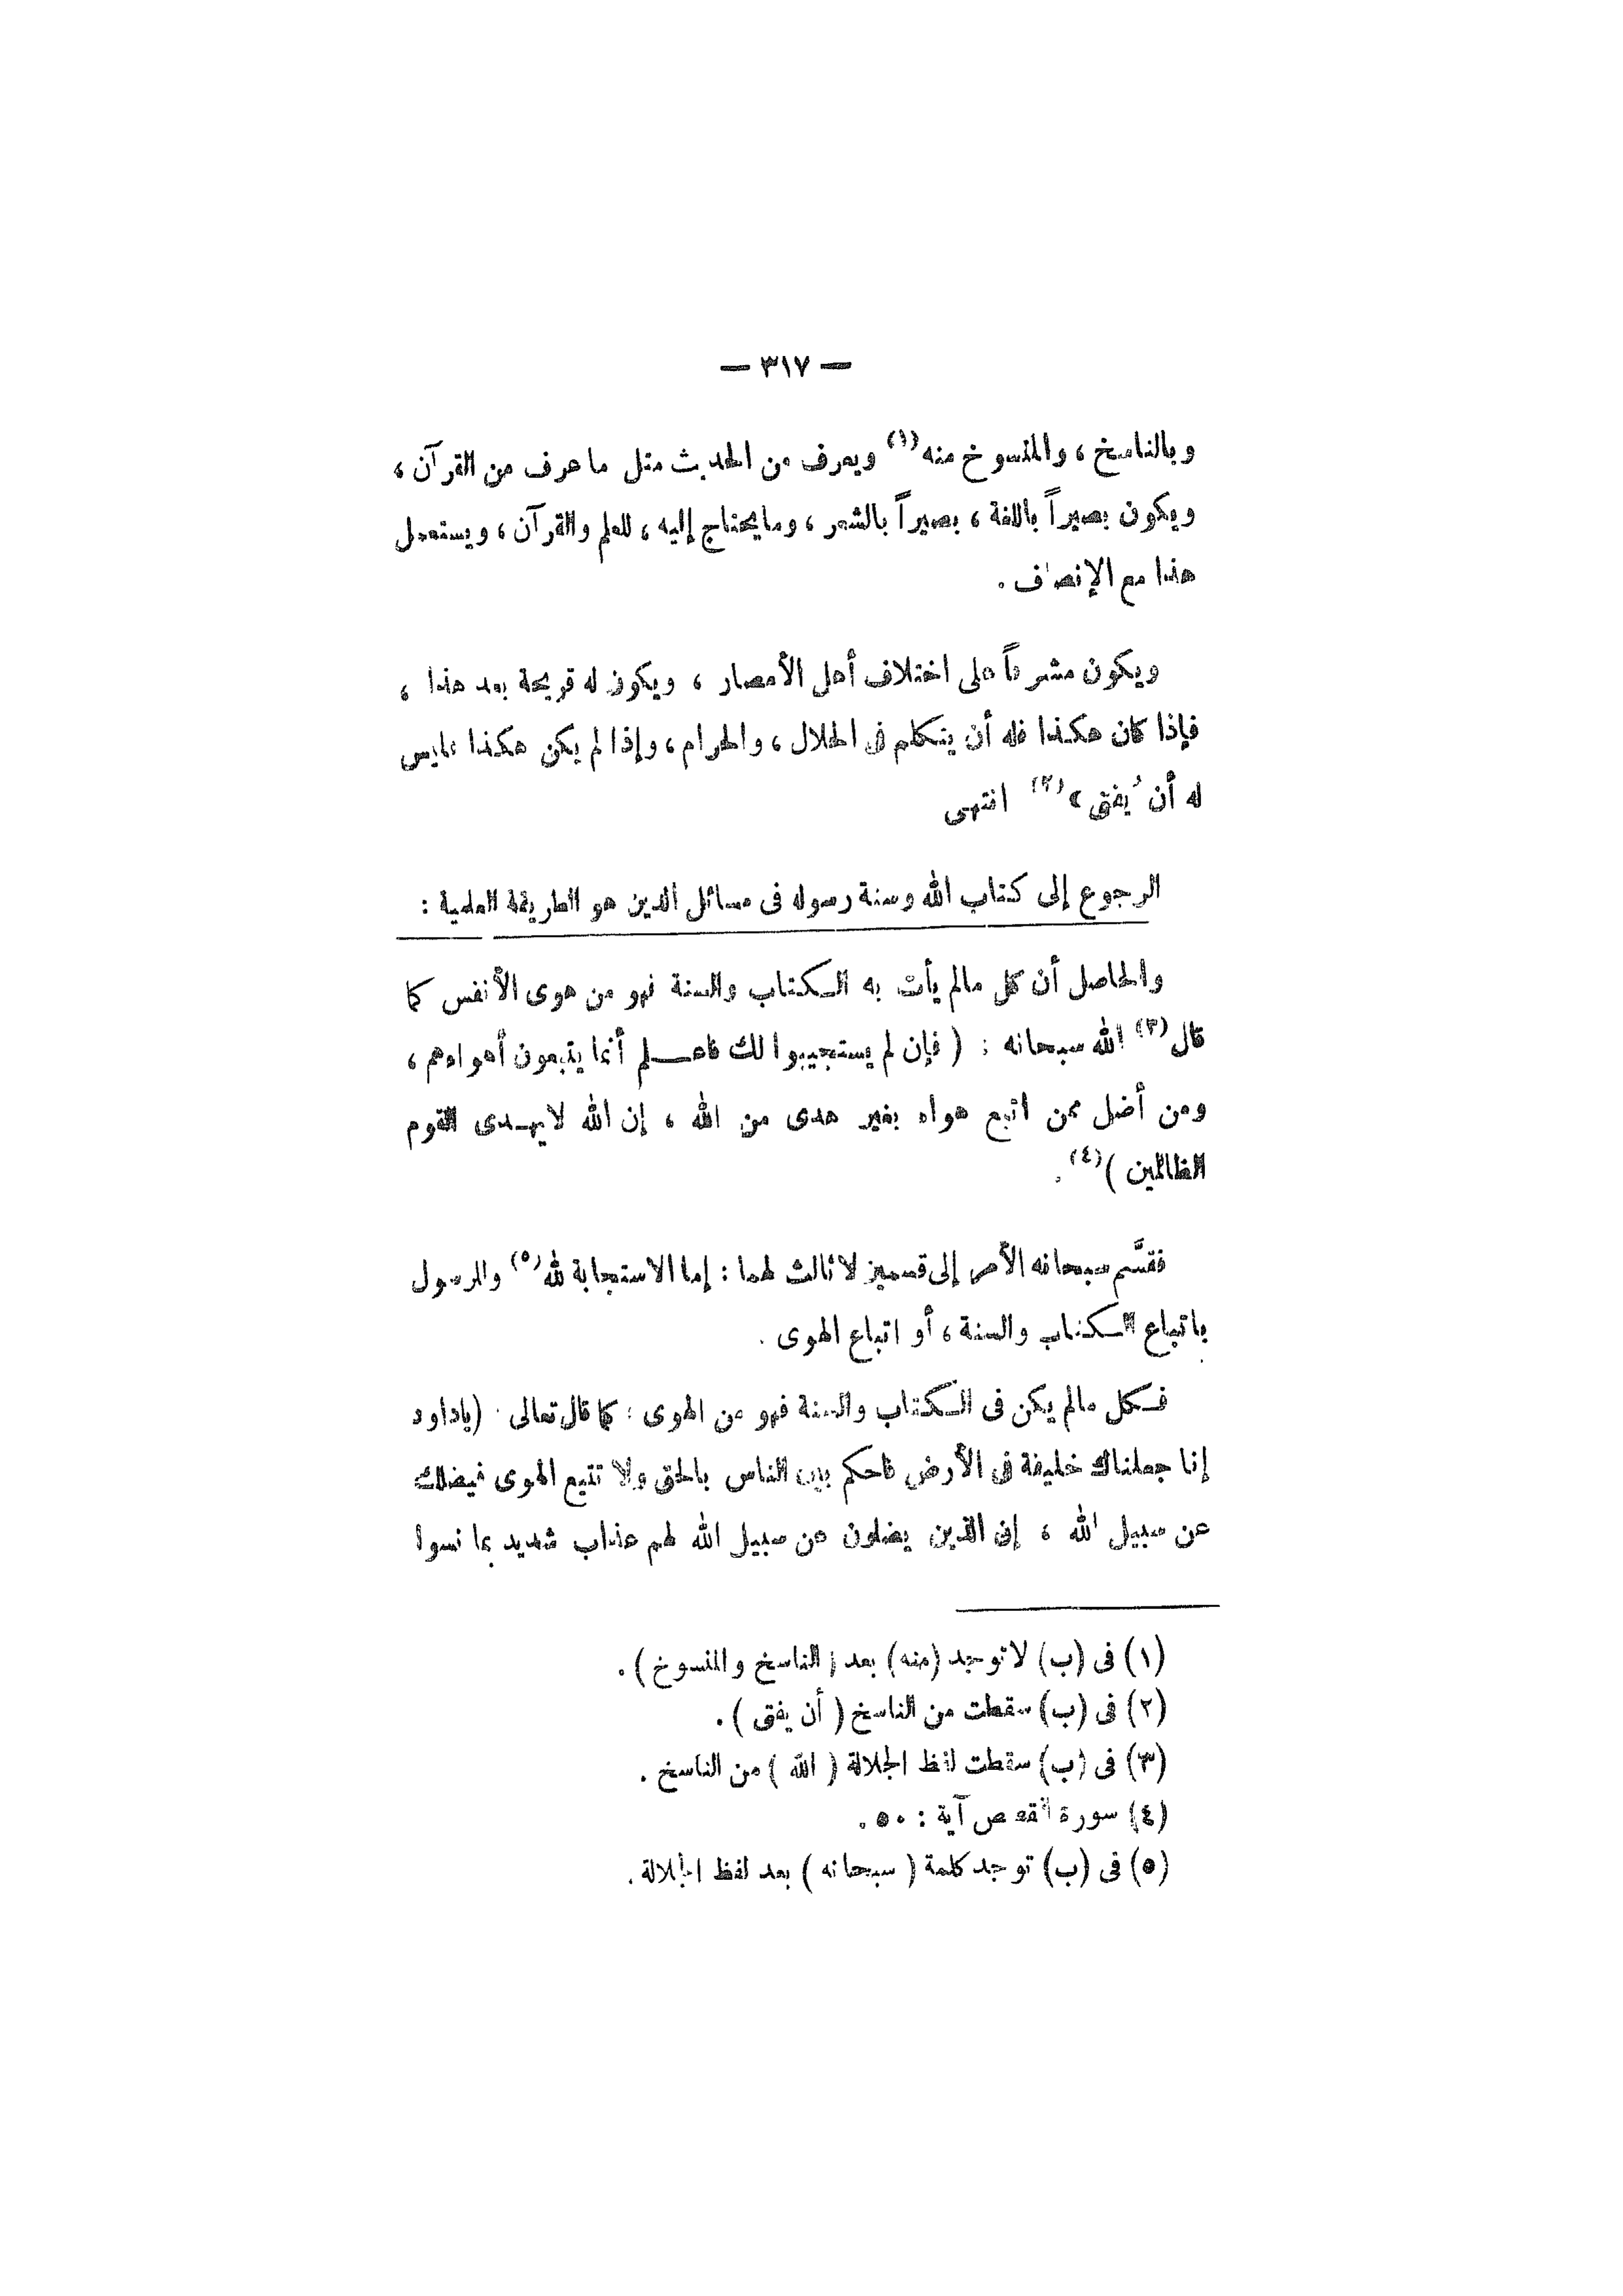 — ٣١٧ —
وبالناسخ ، والمنسوخ منه(١) ويعرف من الحديث مثل ما عرف من القرآن ،
ويكون بصيراً باللغة ، بصيراً بالشعر ، وما يحتاج إليه ، للعلم والقرآن ، ويستعمل
هذا مع الإنصاف .
ويكون مشرفاً على اختلاف أهل الأمصار ، ويكون له قريحة بعد هذا ،
فإذا كان هكذا فله أن يتكلم فى الحلال ، والحرام ، وإذا لم يكن هكذا فليس
له أن يُفتى »(٢) انتهى
الرجوع إلى كتاب الله وسنة رسوله فى مسائل الدين هو الطريقة العلمية :
والحاصل أن كل مالم يأت به الكتاب والسنة فهو من هوى الأنفس كما
قال(٣) الله سبحانه : ( فإن لم يستجيبوا لك فاعلم أنما يتبعون أهواءهم ،
ومن أضل ممن اتبع هواه بغير هدى من الله ، إن الله لا يهدى القوم
الظالمين )(٤) .
فقسَّم سبحانه الأمر إلى قسمين لا ثالث لهما : إما الاستجابة لله(٥) والرسول
باتباع الكتاب والسنة ، أو اتباع الهوى .
فكل مالم يكن فى الكتاب والسنة فهو من الهوى : كما قال تعالى . (ياداود
إنا جعلناك خليفة فى الأرض فاحكم بين الناس بالحق ولا تتبع الهوى فيضلك
عن سبيل الله ، إن الذين يضلون عن سبيل الله لهم عذاب شديد بما نسوا
(١) فى (ب) لا توجد (منه) بعد ( الناسخ والمنسوخ ) .
(٢) فى (ب) سقطت من الناسخ ( أن يفتى ) .
(٣) فى (ب) سقطت لفظ الجلالة ( الله ) من الناسخ .
(٤) سورة القصص آية : ٥٠ .
(٥) فى (ب) توجد كلمة ( سبحانه ) بعد لفظ الجلالة .